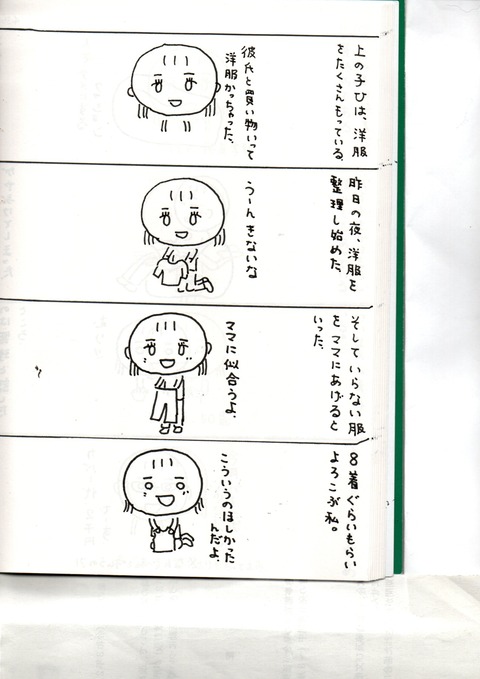 上の子ひは、洋服
をたくさんもっている。
彼氏と買い物いって
洋服かっちゃった、
昨日の夜、洋服を
整理し始めた、
うーんきないな
そしていらない服
をママにあげると
いった、
ママに似合うよ、
8着ぐらいもらい
よろこぶ私。
こういうのほしかった
んだよ、